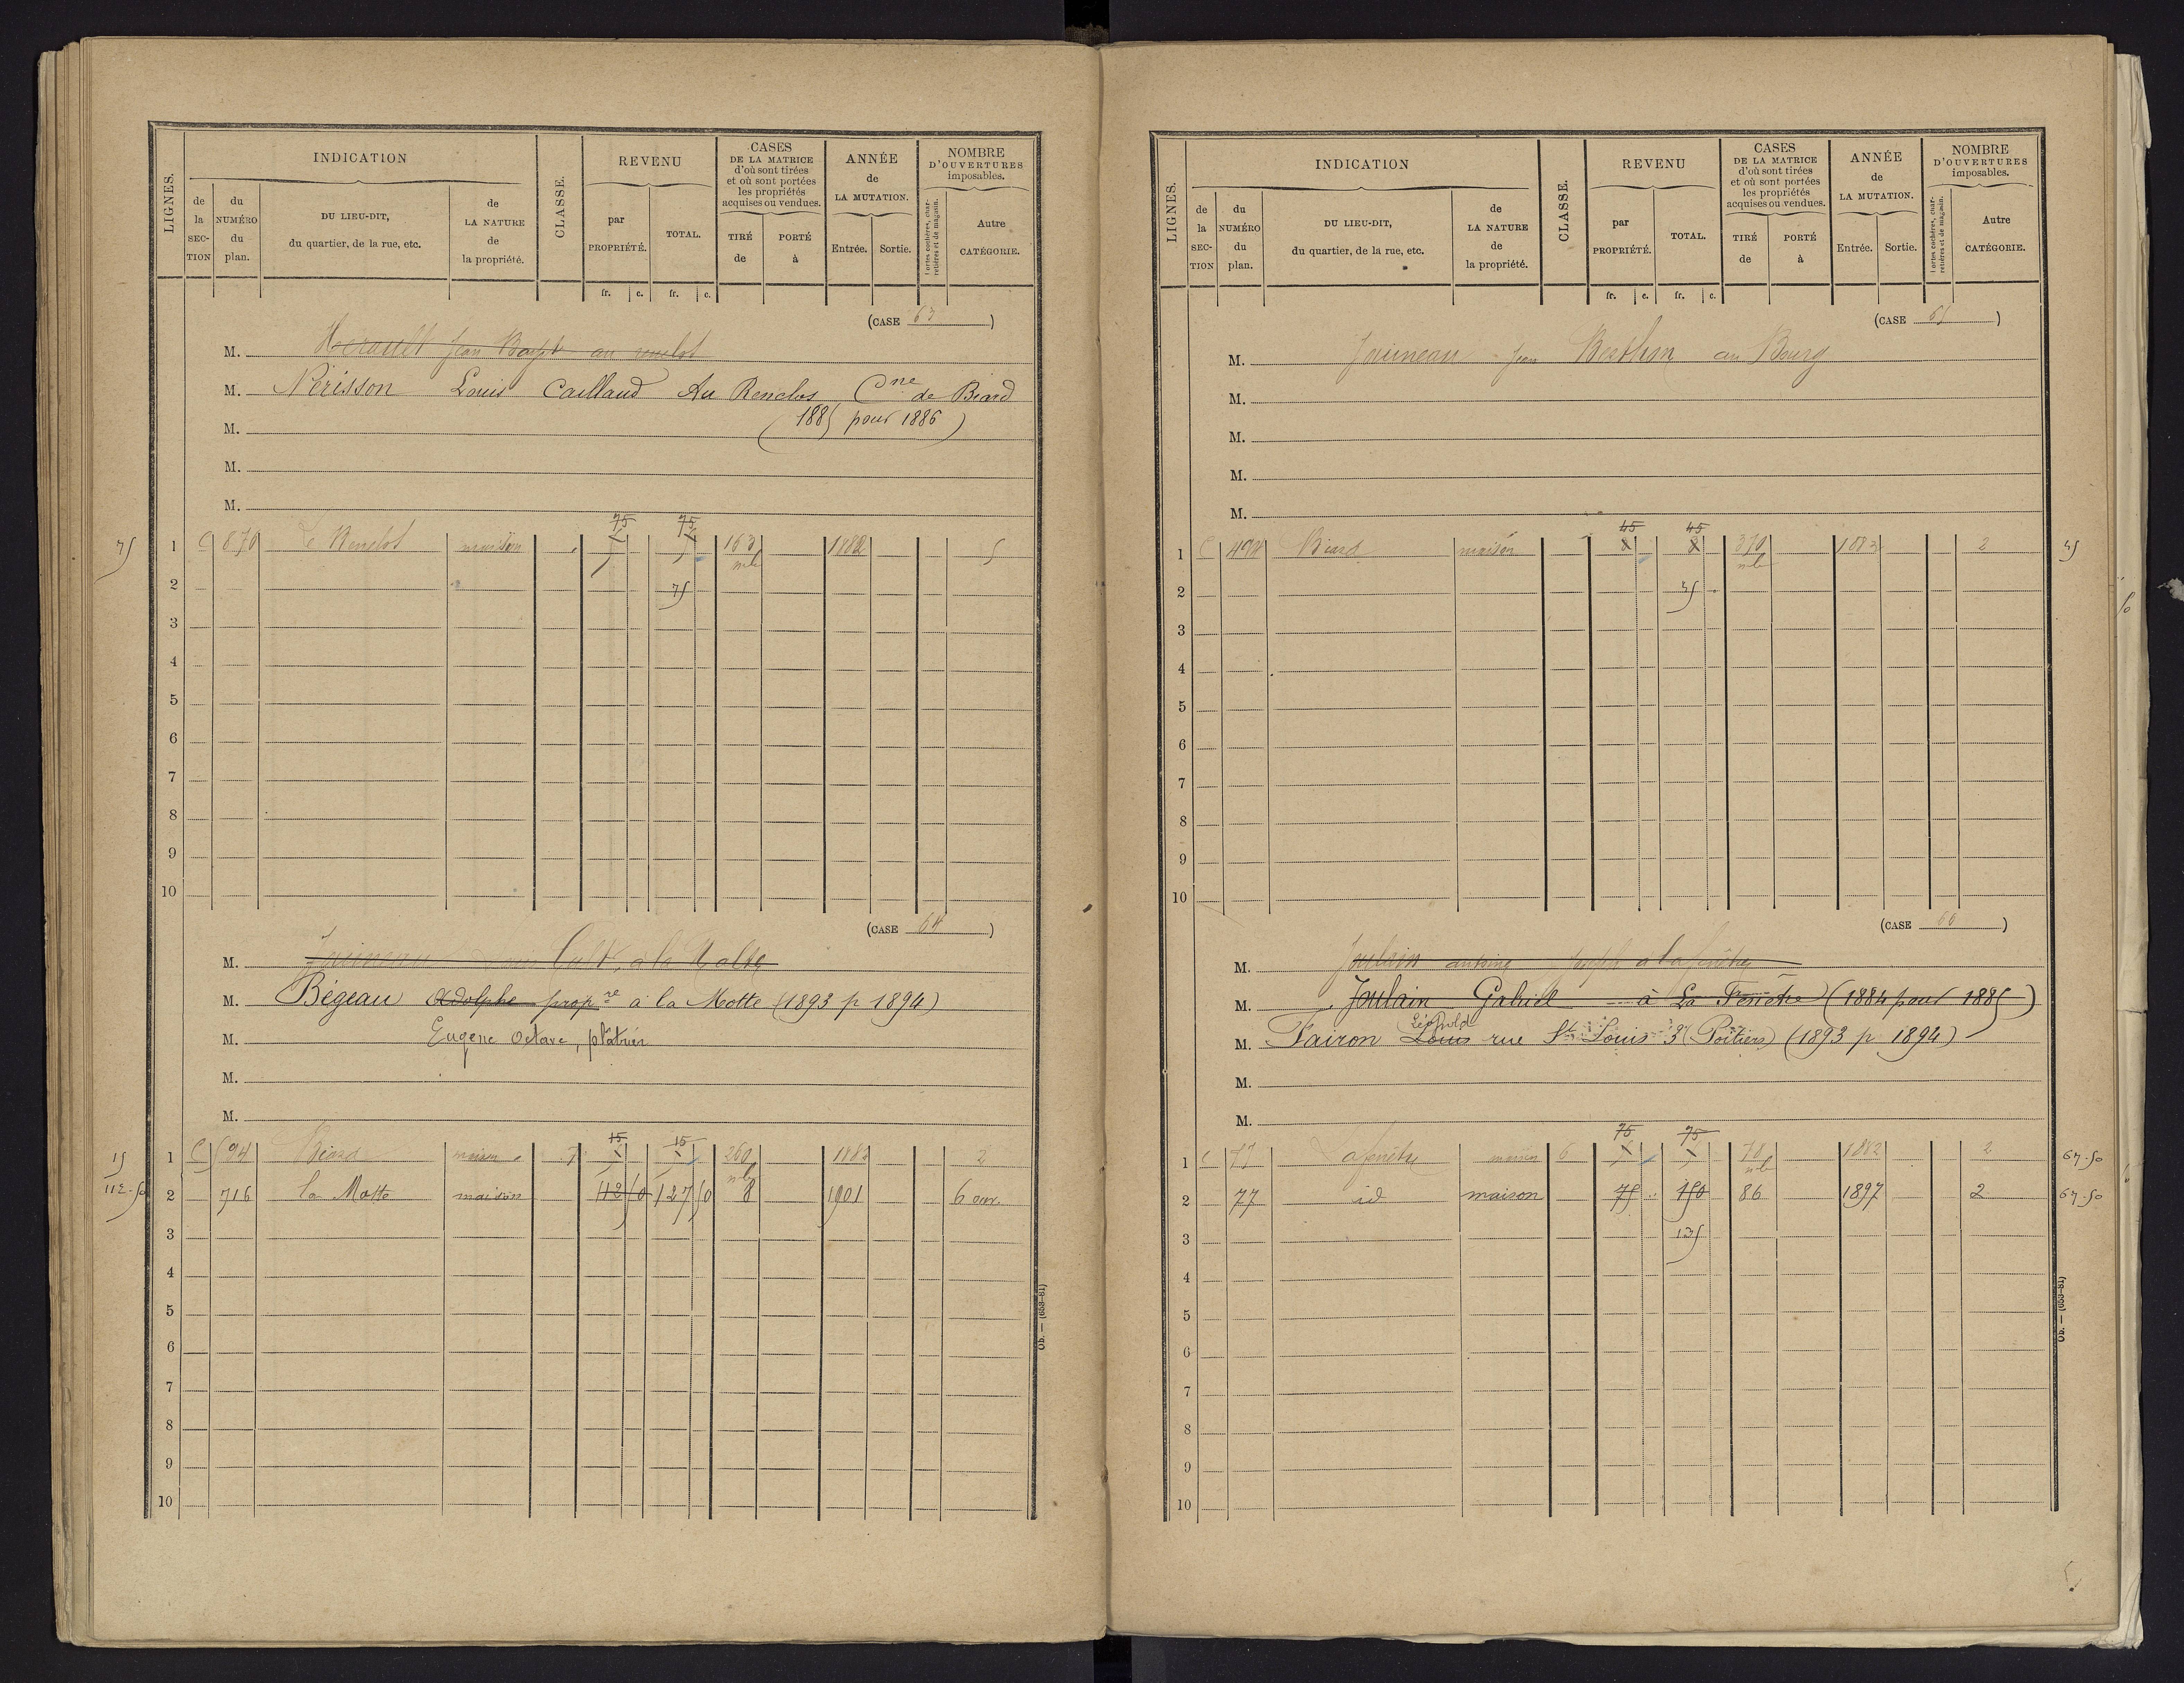 LIGNES.
INDICATION
de la SECTION
du NUMÉRO du plan.
DU LIEU-DIT, du quartier, de la rue, etc.
de LA NATURE de la propriété.
CLASSE.
REVENU
par PROPRIÉTÉ.
TOTAL.
CASES DE LA MATRICE d'où sont tirées et où sont portées les propriétés acquises ou vendues.
TIRÉ de
PORTÉ à
ANNÉE de LA MUTATION.
Entrée.
Sortie.
NOMBRE D'OUVERTURES imposables.
Portes cochères, charretières et de magasin.
Autre CATÉGORIE.
fr. c. fr. c.
(CASE 63)
M. Jean au
M. Nérisson Louis Caillaud Au Renclos Cne de Biard
M. (1885 pour 1886)
M.
M.
75 75
75 1 C 870 maison 163 1882 5
2 75
3
4
5
6
7
8
9
10
(CASE 64)
M. à la
M. Bégeau Adolphe propre à la Motte (1893 p 1894)
M. Eugène Octave, plâtrier
M.
M.
15 15
15 1 C 594 Biard maison 7 260 1882 2
112.50 2 716 la Motte maison 112 50 127 50 8 1901 6 ouv.
3
4
5
6
7
8
9
10
Ob. — (653-81)
LIGNES.
INDICATION
de la SECTION
du NUMÉRO du plan.
DU LIEU-DIT, du quartier, de la rue, etc.
de LA NATURE de la propriété.
CLASSE.
REVENU
par PROPRIÉTÉ.
TOTAL.
CASES DE LA MATRICE d'où sont tirées et où sont portées les propriétés acquises ou vendues.
TIRÉ de
PORTÉ à
ANNÉE de LA MUTATION.
Entrée.
Sortie.
NOMBRE D'OUVERTURES imposables.
Portes cochères, charretières et de magasin.
Autre CATÉGORIE.
fr. c. fr. c.
(CASE 65)
M. Jean au Bourg
M.
M.
M.
M.
45 45
1 C Biard maison 8 8 370 1882 2 45
2 45
3
4
5
6
7
8
9
10
(CASE 66)
M. Joulain antoine à la fenêtre
M. Joulain Gabriel à La Fenêtre (1884 pour 1885)
Léopold
M. Fairon Louis rue St Louis 3 (Poitiers) (1893 p 1894)
M.
M.
75 75
1 C 77 maison 6 70 1882 2 67.50
2 77 id maison 75 150 86 1897 2 67.50
3 135
4
5
6
7
8
9
10
Ob. — (653-81)